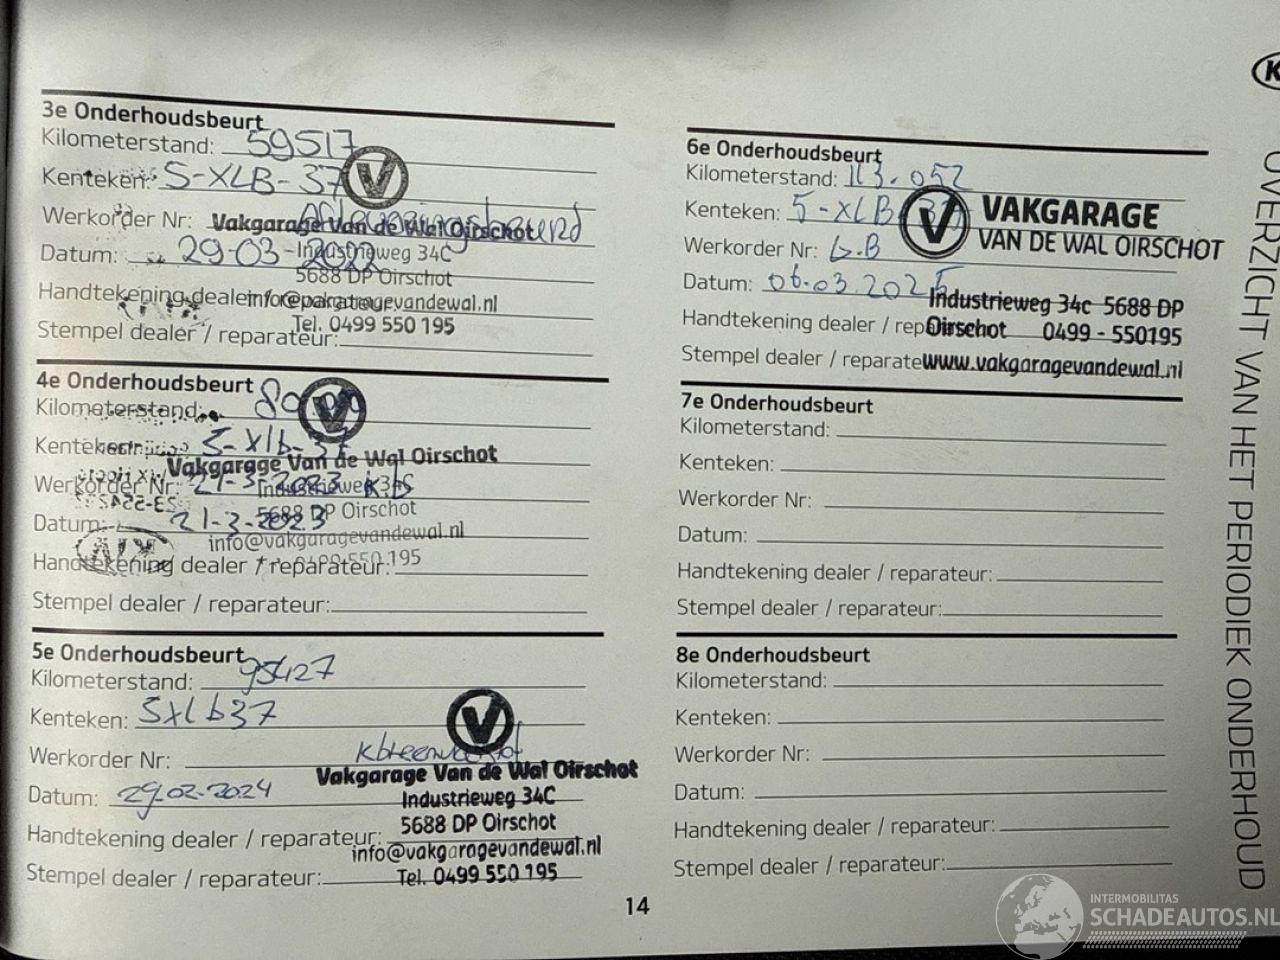 3e Onderhoudsbeurt
Kilometerstand: 59517
Kenteken: 5-XLB-37
Werkorder Nr:
Vakgarage Van de Wal Oirschot
Datum: 29-03-2022
Industrieweg 34C
5688 DP Oirschot
Handtekening dealer
info@vakgaragevandewal.nl
Tel. 0499 550 195
Stempel dealer / reparateur:
4e Onderhoudsbeurt
Kilometerstand:
Kenteken: 5-Xlb-37
Vakgarage Van de Wal Oirschot
Werkorder Nr: 21-3-2023
Industrieweg 34C
5688 DP Oirschot
Datum: 21-3-2023
info@vakgaragevandewal.nl
Handtekening dealer / reparateur:
0499 550 195
Stempel dealer / reparateur:
5e Onderhoudsbeurt
Kilometerstand: 95427
Kenteken: 5xlb37
Werkorder Nr:
Vakgarage Van de Wal Oirschot
Datum: 29-02-2024
Industrieweg 34C
5688 DP Oirschot
Handtekening dealer / reparateur:
info@vakgaragevandewal.nl
Stempel dealer / reparateur:
Tel. 0499 550 195
6e Onderhoudsbeurt
Kilometerstand: 113.052
Kenteken: 5-XLB-37
VAKGARAGE
VAN DE WAL OIRSCHOT
Werkorder Nr: G.B
Datum: 06.03.2025
Industrieweg 34c 5688 DP
Oirschot 0499 - 550195
Handtekening dealer /
www.vakgaragevandewal.nl
Stempel dealer /
7e Onderhoudsbeurt
Kilometerstand:
Kenteken:
Werkorder Nr:
Datum:
Handtekening dealer / reparateur:
Stempel dealer / reparateur:
8e Onderhoudsbeurt
Kilometerstand:
Kenteken:
Werkorder Nr:
Datum:
Handtekening dealer / reparateur:
Stempel dealer / reparateur:
14
OVERZICHT VAN HET PERIODIEK ONDERHOUD
INTERMOBILITAS
SCHADEAUTOS.NL